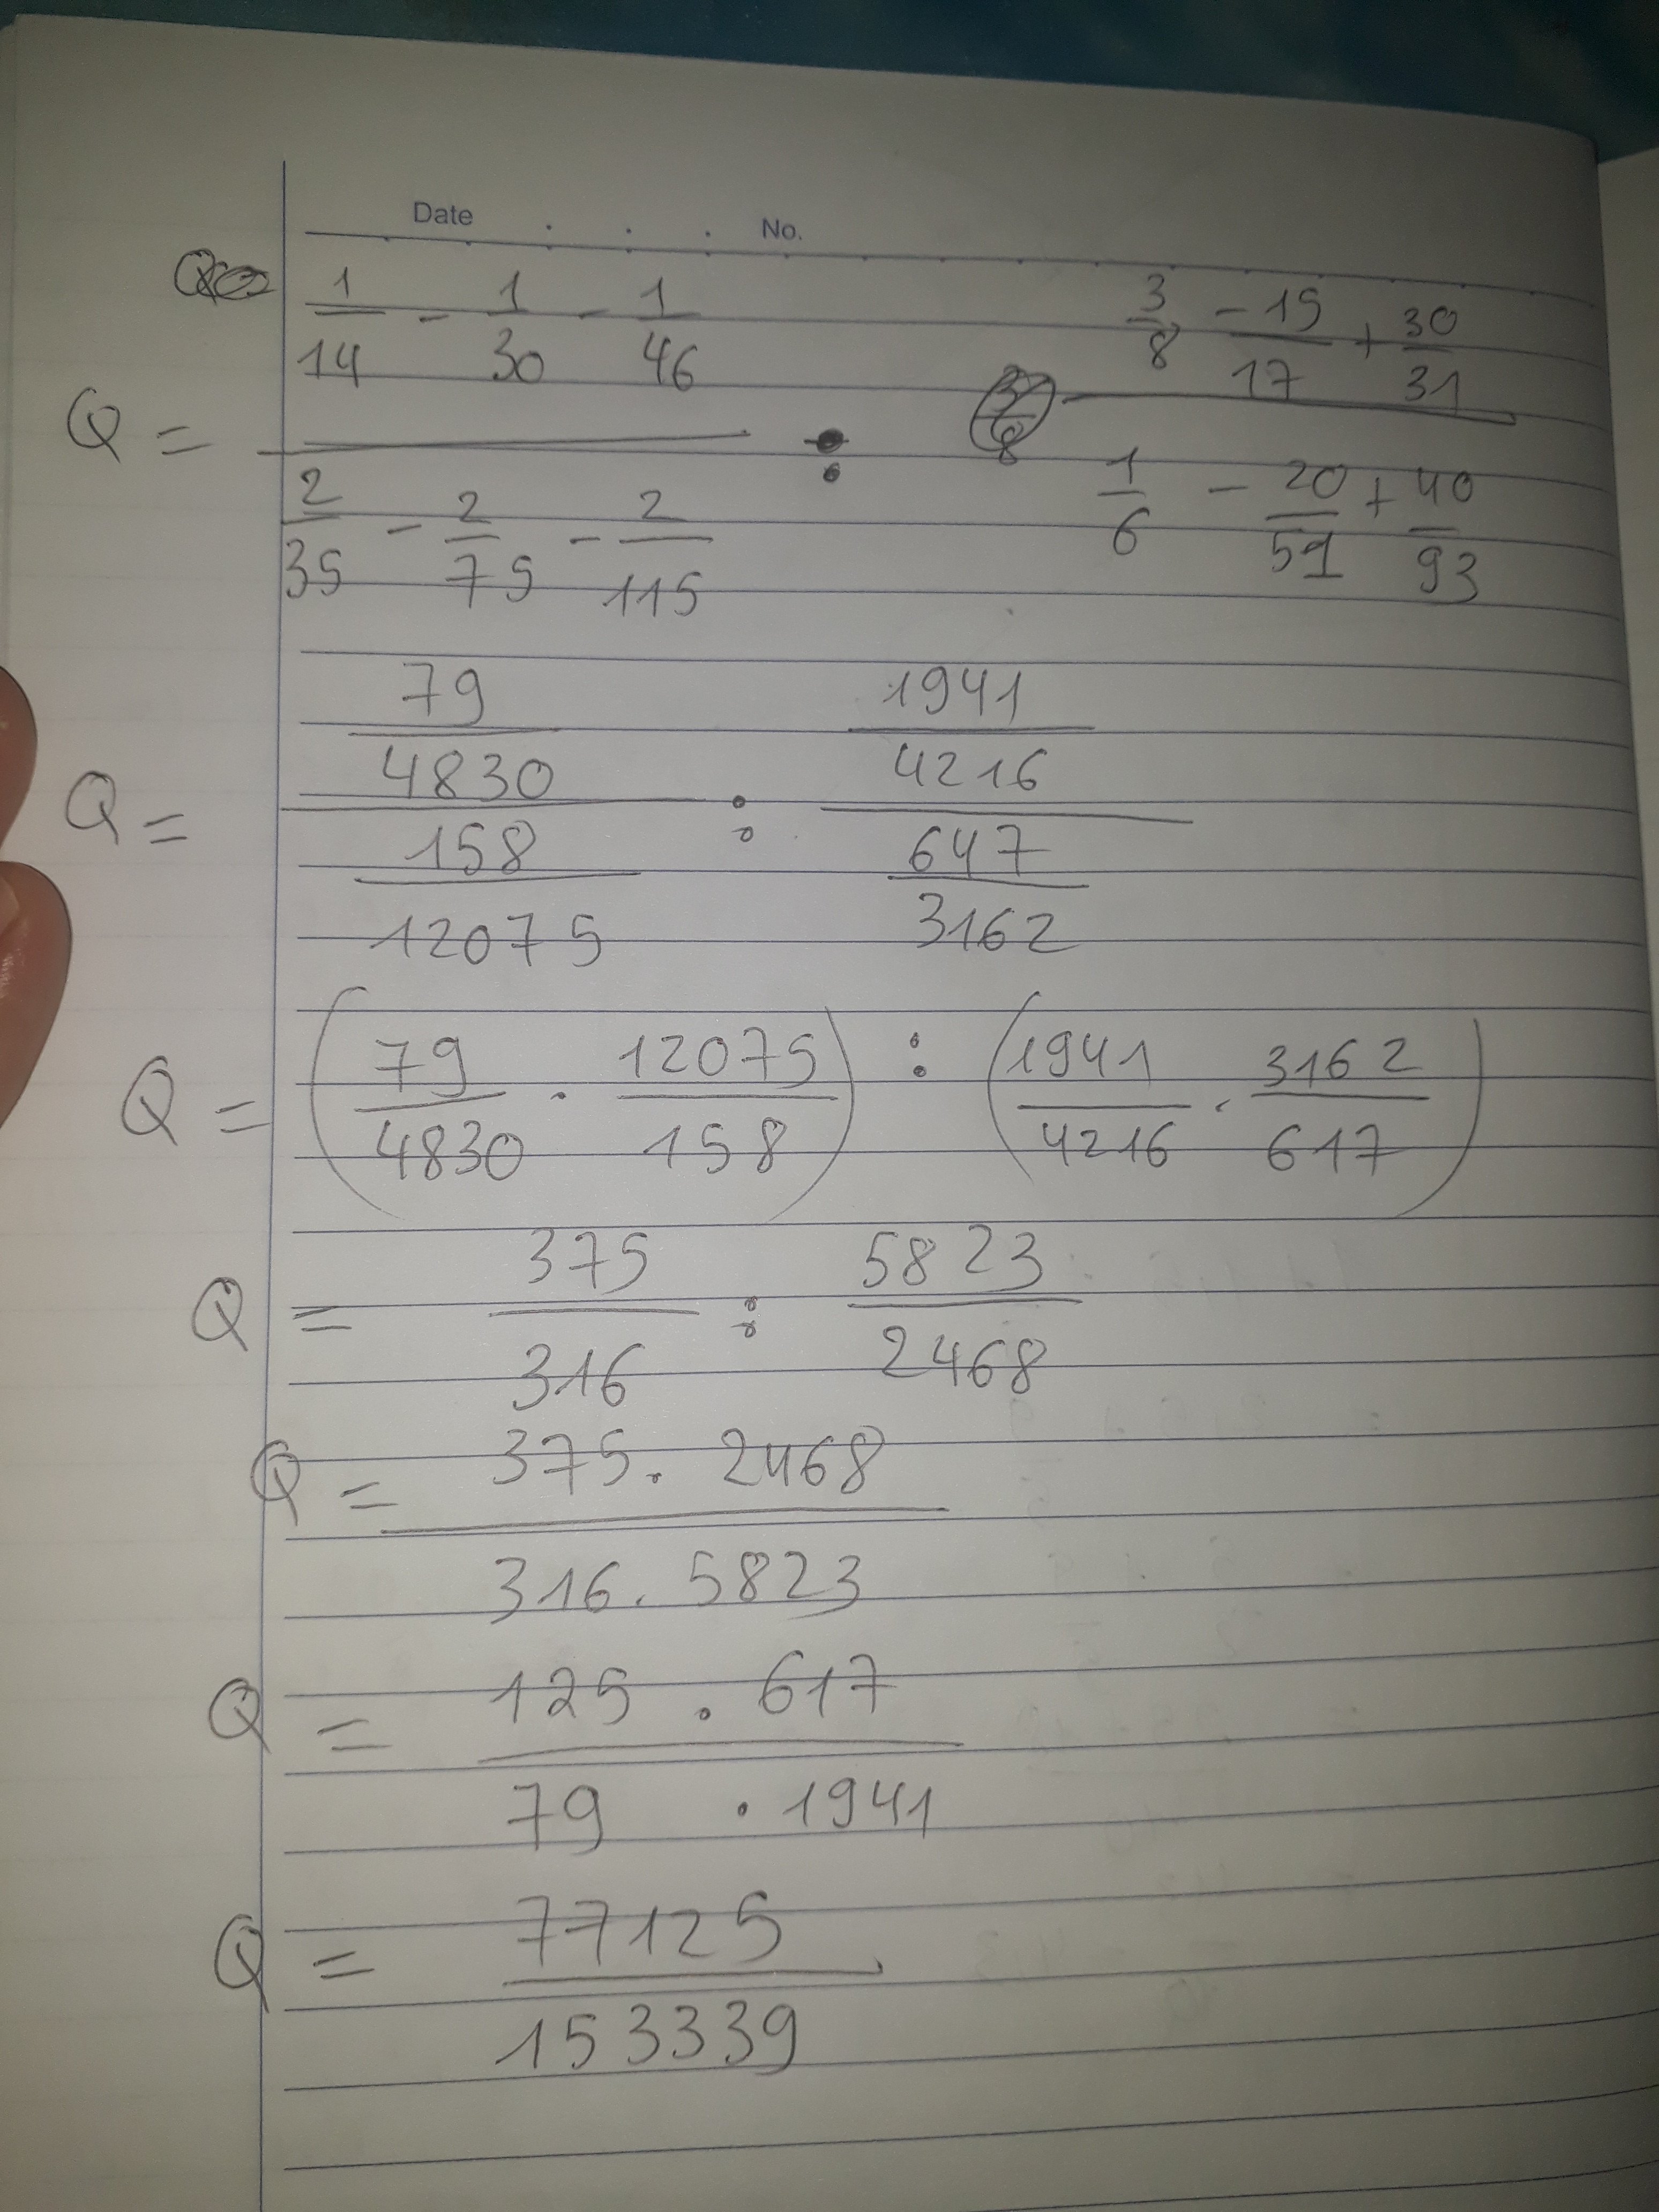 Date . . . No.
Q = (1/14 - 1/30 - 1/46) / (2/35 - 2/75 - 2/115) : (3/8 - 15/17 + 30/31) / (1/6 - 20/51 + 40/93)
Q = (79/4830) / (158/12075) : (1941/4216) / (647/3162)
Q = (79/4830 . 12075/158) : (1941/4216 . 3162/617)
Q = 375/316 : 5823/2468
Q = (375 . 2468) / (316 . 5823)
Q = (125 . 617) / (79 . 1941)
Q = 77125/153339